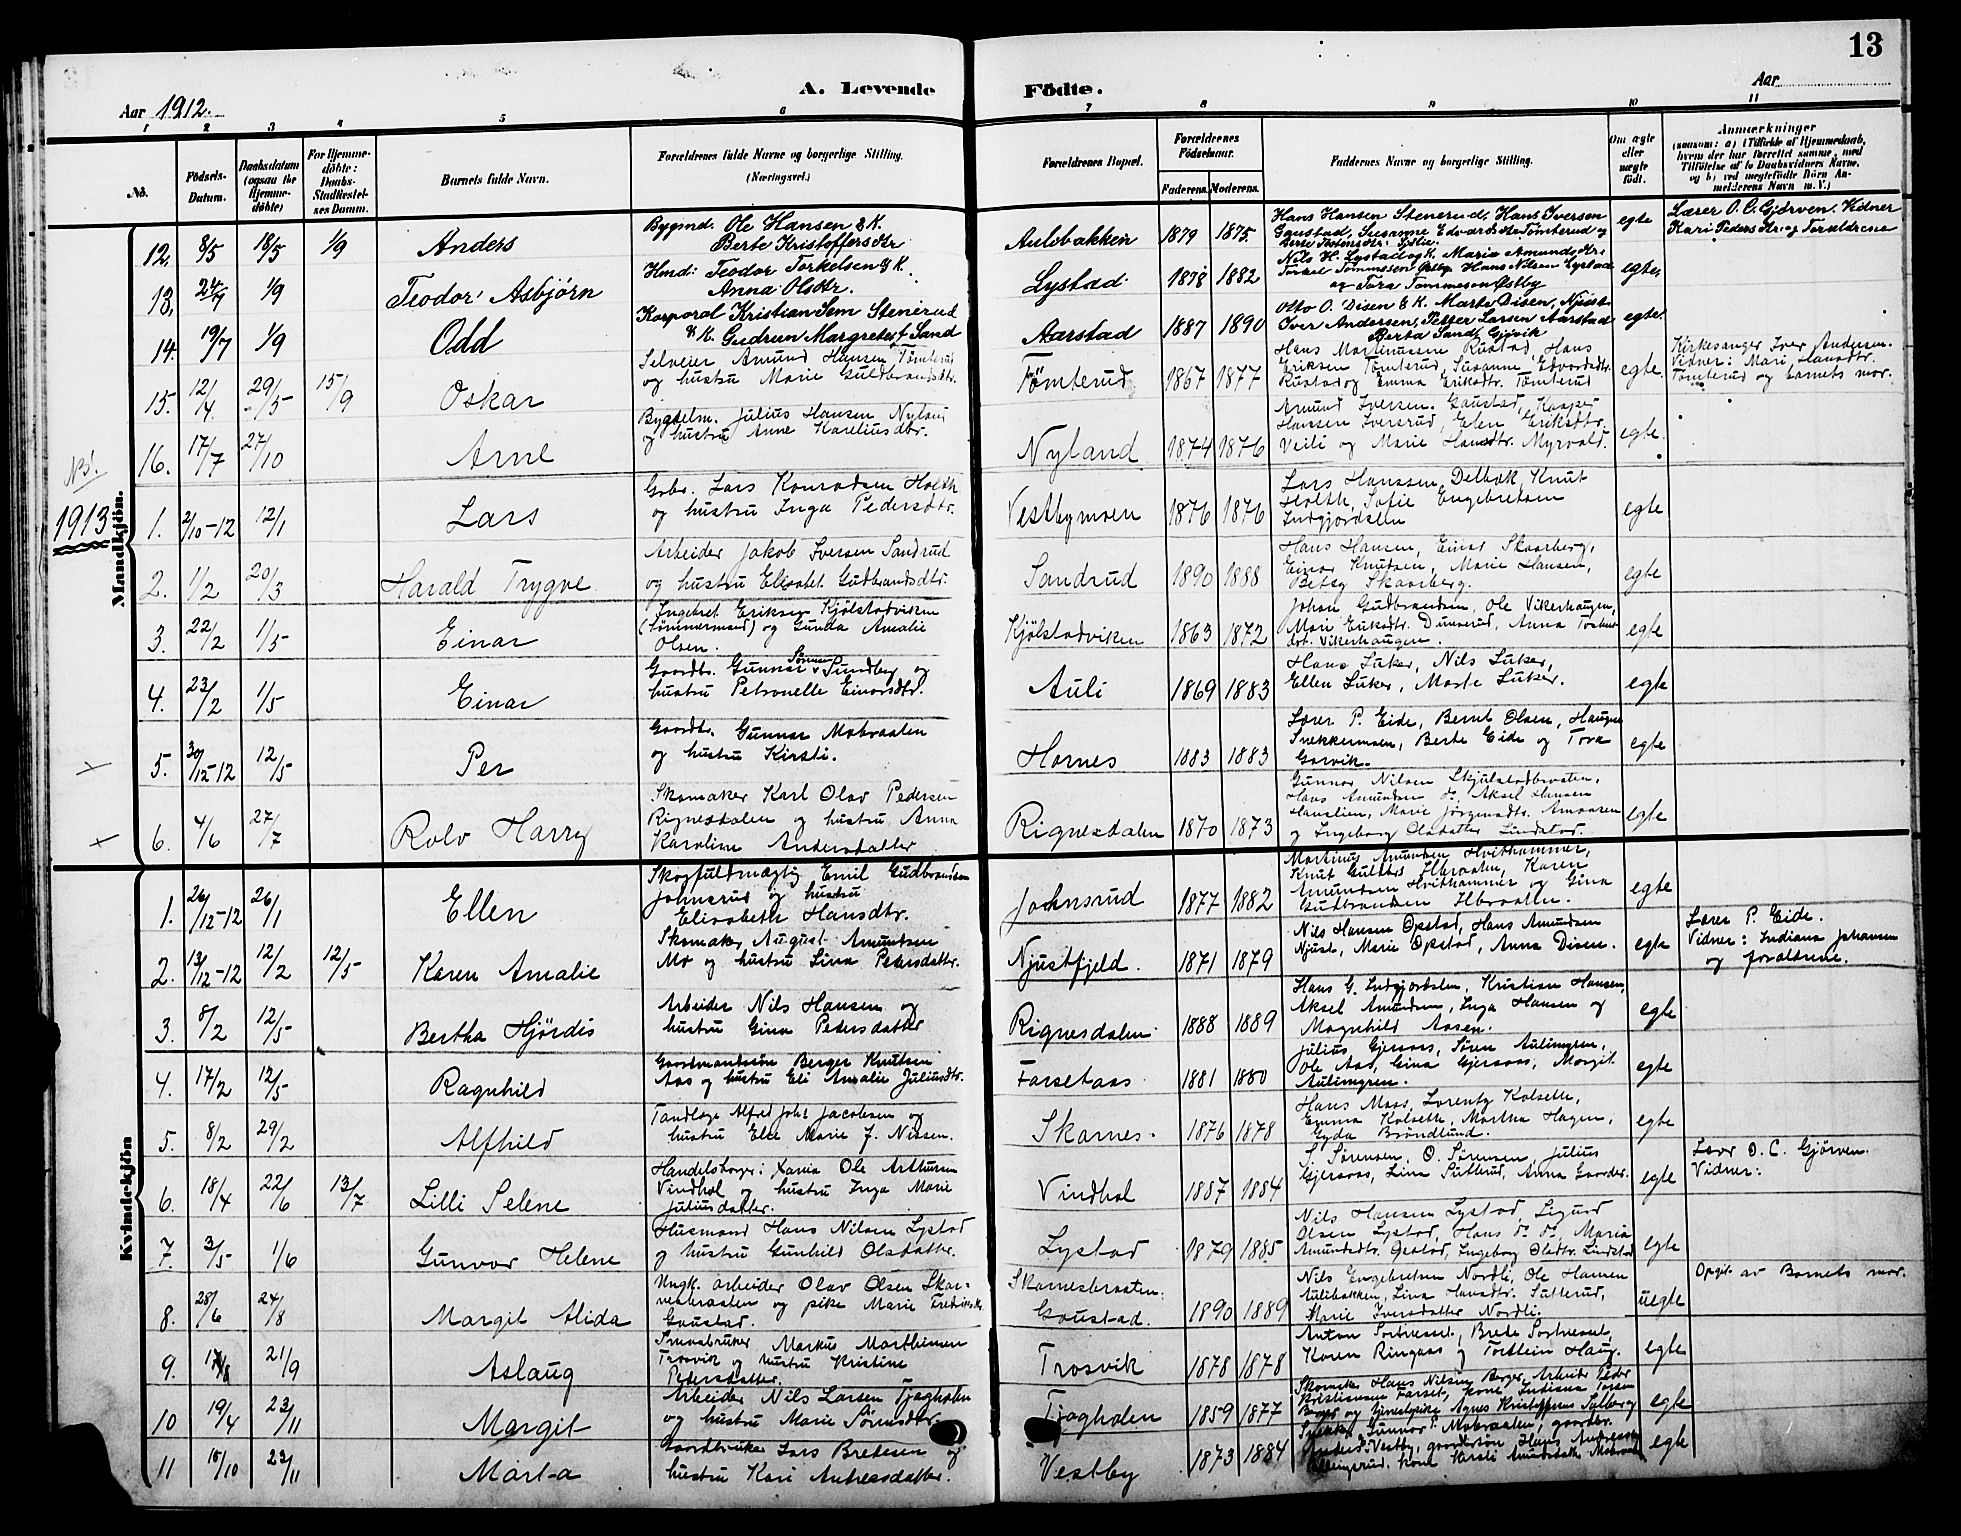 13
Aar 1912.
A. Levende Födte.
Aar
1 2 3 4 5 6 7 8 9 10 11
No.
Födsels-Datum.
Daabsdatum (ogsaa for Hjemme-döbte)
For Hjemme-döbte: Daabs-Stadfæstel-ses Datum.
Barnets fulde Navn.
Forældrenes fulde Navne og borgerlige Stilling. (Næringsvei.)
Forældrenes Bopæl.
Forældrenes Födselsaar.
Faderens. Moderens.
Faddernes Navne og borgerlige Stilling.
Om ægte eller uægte födt.
Anmærkninger
(saasom: a) i Tilfælde af Hjemmedaab, hvem der har forrettet samme, med Tilföielse af to Daabsvidners Navne. og b) ved uægtefödte Börn Anmelderens Navn m. V.)
Mandkjön.
12. 8/5 18/5 1/9 Anders
Bygmd. Ole Hansen & K.
Berte Kristoffersdtr
Aulebakken 1879 1875.
Hans Hansen Stenerud, Hans Iversen
Gaustad, Susanne Edvardsdtr Tömterud og
egte
Lærer O. C. Gjörven. Vidner
Kari Pedersdtr. og Forældrene
13. 24/7 1/9 Teodor Asbjörn
Hmd: Teodor Torkelsen & K.
Anna Olsdtr.
Lystad 1878 1882
Nils H. Lystad og K. Maria Amundsdtr.
Torkel Tommessen Östby, Hans Nilsen Lystad
og Tora Tommesen Östby
egte.
14. 19/7 1/9 Odd
Korporal Kristian Sem Stenerud
& K. Gudrun Margrete f. Sand
Aarstad 1887 1890
Otto O. Disen & K. Marte Disen, Njust
Iver Andersen, Petter Larsen Aarstad
Berta Sand, Gjövik
egte.
15. 12/4 29/5 15/9 Oskar
Selveier Amund Hansen Tömterud
og hustru Marie Guldbrandsdtr.
Tömterud 1867 1877
Hans Martinussen Rustad, Hans
Eriksen Tömterud, Susanne Edvardsdtr.
Rustad og Emma Eriksdtr. Tömterud
egte.
Kirkesanger Iver Andersen.
Vidner: Mari Hansdtr.
Tömterud og barnets mor.
16. 17/7 27/10 Arne
Bygselm. Julius Hansen Nyland
og hustru Anne Kareliusdtr.
Nyland 1874 1876
Amund Iversen Gaustad, Kasper
Hansen Iversrud, Elen Eriksdtr.
Veili og Marie Hansdtr. Myrvold.
egte.
1913
1. 2/10-12 12/1 Lars
Gbr. Lars Konradsen Holth
og hustru Inga Pedersdtr.
Vestbymoen 1876 1876
Lars Hanssen Delbæk, Knut
Holth, Sofie Engebretsen
Indgjordslen
egte
2. 1/2 20/3 Harald Trygve
Arbeider Jakob Iversen Sandrud
og hustru Elisabet Gudbrandsdtr.
Sandrud 1890 1888
Hans Hansen, Einar Skaarberg,
Einar Knutsen, Marie Hansen,
Betsy Skaarberg.
egte
3. 22/2 1/5 Einar
Ingebret Eriksen Kjölstadviken
(Tömmermand) og Gunda Amalie
Olsen.
Kjölstadviken 1863 1872
Johan Gudbrandsen, Ole Vikerhaugen,
Mari Eriksdtr. Dunserud, Anna
Vikerhaugen.
egte
4. 23/2 1/5 Einar
Gaardbr. Gunnar Sörensen Sundby og
hustru Petronelle Einarsdtr.
Auli 1869 1883
Hans Luker, Nils Luker,
Ellen Luker, Marte Luker.
egte
5. 30/12-12 12/5 Per
Gaardbr. Gunnar Mobraaten
og hustru Kirsti.
Hornes 1883 1883
Lærer P. Eide, Bernt Olsen, Haugen
Snekkermoen, Berte Eide og Tora
Garvik.
egte
6. 4/6 27/7 Rolv Harry
Skomaker Karl Olav Pedersen
Rignesdalen og hustru Anna
Karoline Andersdatter
Rignesdalen 1870 1873
Gunnar Nilsen Skjulstadbraaten,
Hans Amundsen do. Aksel Hansen
Hanslien, Marie Jörgensdtr. Amaasen
og Ingeborg Olsdatter Lindstad.
egte
Kvindekjön
1. 26/12-12 26/1 Ellen
Skogfuldmægtig Emil Gudbrandsen
Johnsrud og hustru
Elisabeth Hansdtr.
Johnsrud 1877 1882
Martinus Amundsen Hvithammer,
Knut Gulbrs. Ilbraaten, Karen
Amundsen Hvithammer og Gina
Gudbrandsen Ilbraaten.
egte
2. 13/12-12 12/2 12/5 Karen Amalie
Skomaker August Amundsen
Mo og hustru Lina Petersdatter.
Njustfjeld. 1871 1879
Nils Hansen Opstad, Hans Amundsen
Njust, Marie Opstad, Anna Disen.
egte
Lærer P. Eide.
Vidner: Indiana Johansen
og forældrene.
3. 8/2 12/5 Bertha Hjördis
Arbeider Nils Hansen og
hustru Gina Petersdatter
Rignesdalen 1888 1889
Hans G. Indgjordslen, Kristian Hansen,
Aksel Amundsen, Inga Hansen og
Magnhild Aasen.
egte
4. 17/2 12/5 Ragnhild
Gaardmandssön Berger Knutsen
Aas og hustru Eli Amalie Juliusdtr.
Farsetaas 1881 1880
Julius Gjersaas, Sören Aulimyren,
Ole Aas, Gina Gjersaas, Margit
Aulimyren.
egte
5. 8/2 29/2 Alfhild
Tandlæge Alfred Johs Jacobsen og
hustru Else Marie J. Nissen.
Skarnes. 1876 1878
Hans Moss, Lorentz Kolseth,
Emma Kolseth, Martha Hagen,
Gyda Bröndlund.
egte
6. 18/4 22/6 13/7 Lilli Selene
Handelsborger: Xania Ole Arthursen
Vindhol og hustru Inga Marie
Juliusdatter.
Vindhol 1887 1884
S. Sörensen, O. Sörensen, Julius
Gjersaas, Lina Sutterud, Anna Gaarder.
egte
Lærer O. C. Gjörven.
Vidner:
7. 3/5 1/6 Gunvor Helene
Husmand Hans Nilsen Lystad
og hustru Gunhild Olsdatter.
Lystad 1879 1885
Nils Hansen Lystad, Sigurd
Olsen Lystad, Hans do. do, Maria
Amundsdtr. Opstad, Ingeborg Olsdtr. Lindstad
egte
8. 28/6 24/8 Margit Alida
Ungk. arbeider Olav Olsen Skar-
nesbraaten og pike Marie Fredriksdtr.
Goustad.
Skarnesbraaten:
Goustad. 1890 1889
Nils Engebretsen Nordli, Ole Hansen
Aulibakken, Lina Hansdtr. Sutterud,
Marie Iversdatter Nordli.
uegte
Opgit av Barnets mor.
9. 21/9 Aslaug
Smaabruker Markus Marthinsen
Trosvik og hustru Kristine
Pedersdatter.
Trosvik 1878 1878
Anton Sortnessel, Brede Sortnessel,
Karen Ringaas og Torstein Haug.
egte
10 19/4 23/11 Margit
Arbeider Nils Larsen Tjagholen
og hustru Marie Sörensdtr.
Tjagholen 1859 1877
egte
11 15/10 23/11 Marta
Gaardbruker Lars Bredesen og
hustru Kari Andreasdatter.
Vestby 1873 1884
egte